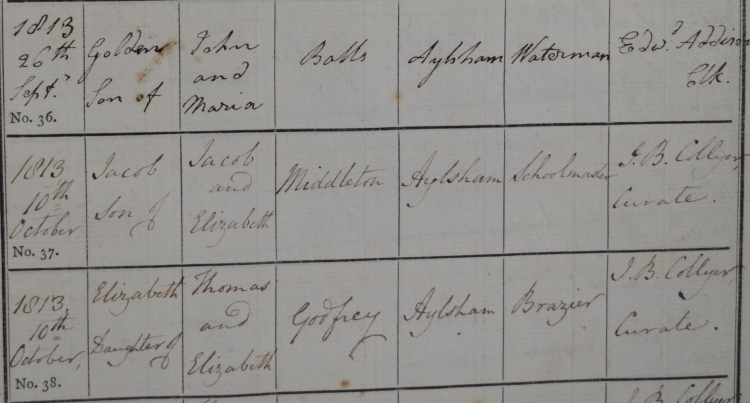 1813
26th
Sept.r
No. 36.
Golden
Son of
John
and
Maria
Balls
Aylsham
Waterman
Edw.d Addison
Clk.
1813
10th
October
No. 37.
Jacob
Son of
Jacob
and
Elizabeth
Middleton
Aylsham
Schoolmaster
J. B. Collyer,
Curate.
1813,
10th
October,
No. 38.
Elizabeth
Daughter of
Thomas
and
Elizabeth
Godfrey
Aylsham
Brazier
J. B. Collyer,
Curate.
J. B. Collyer